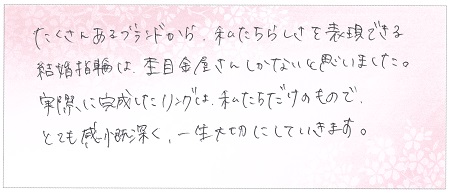 たくさんあるブランドから、私たちらしさを表現できる
結婚指輪は、杢目金屋さんしかないと思いました。
実際に完成したリングは、私たちだけのもので、
とても感慨深く、一生大切にしていきます。